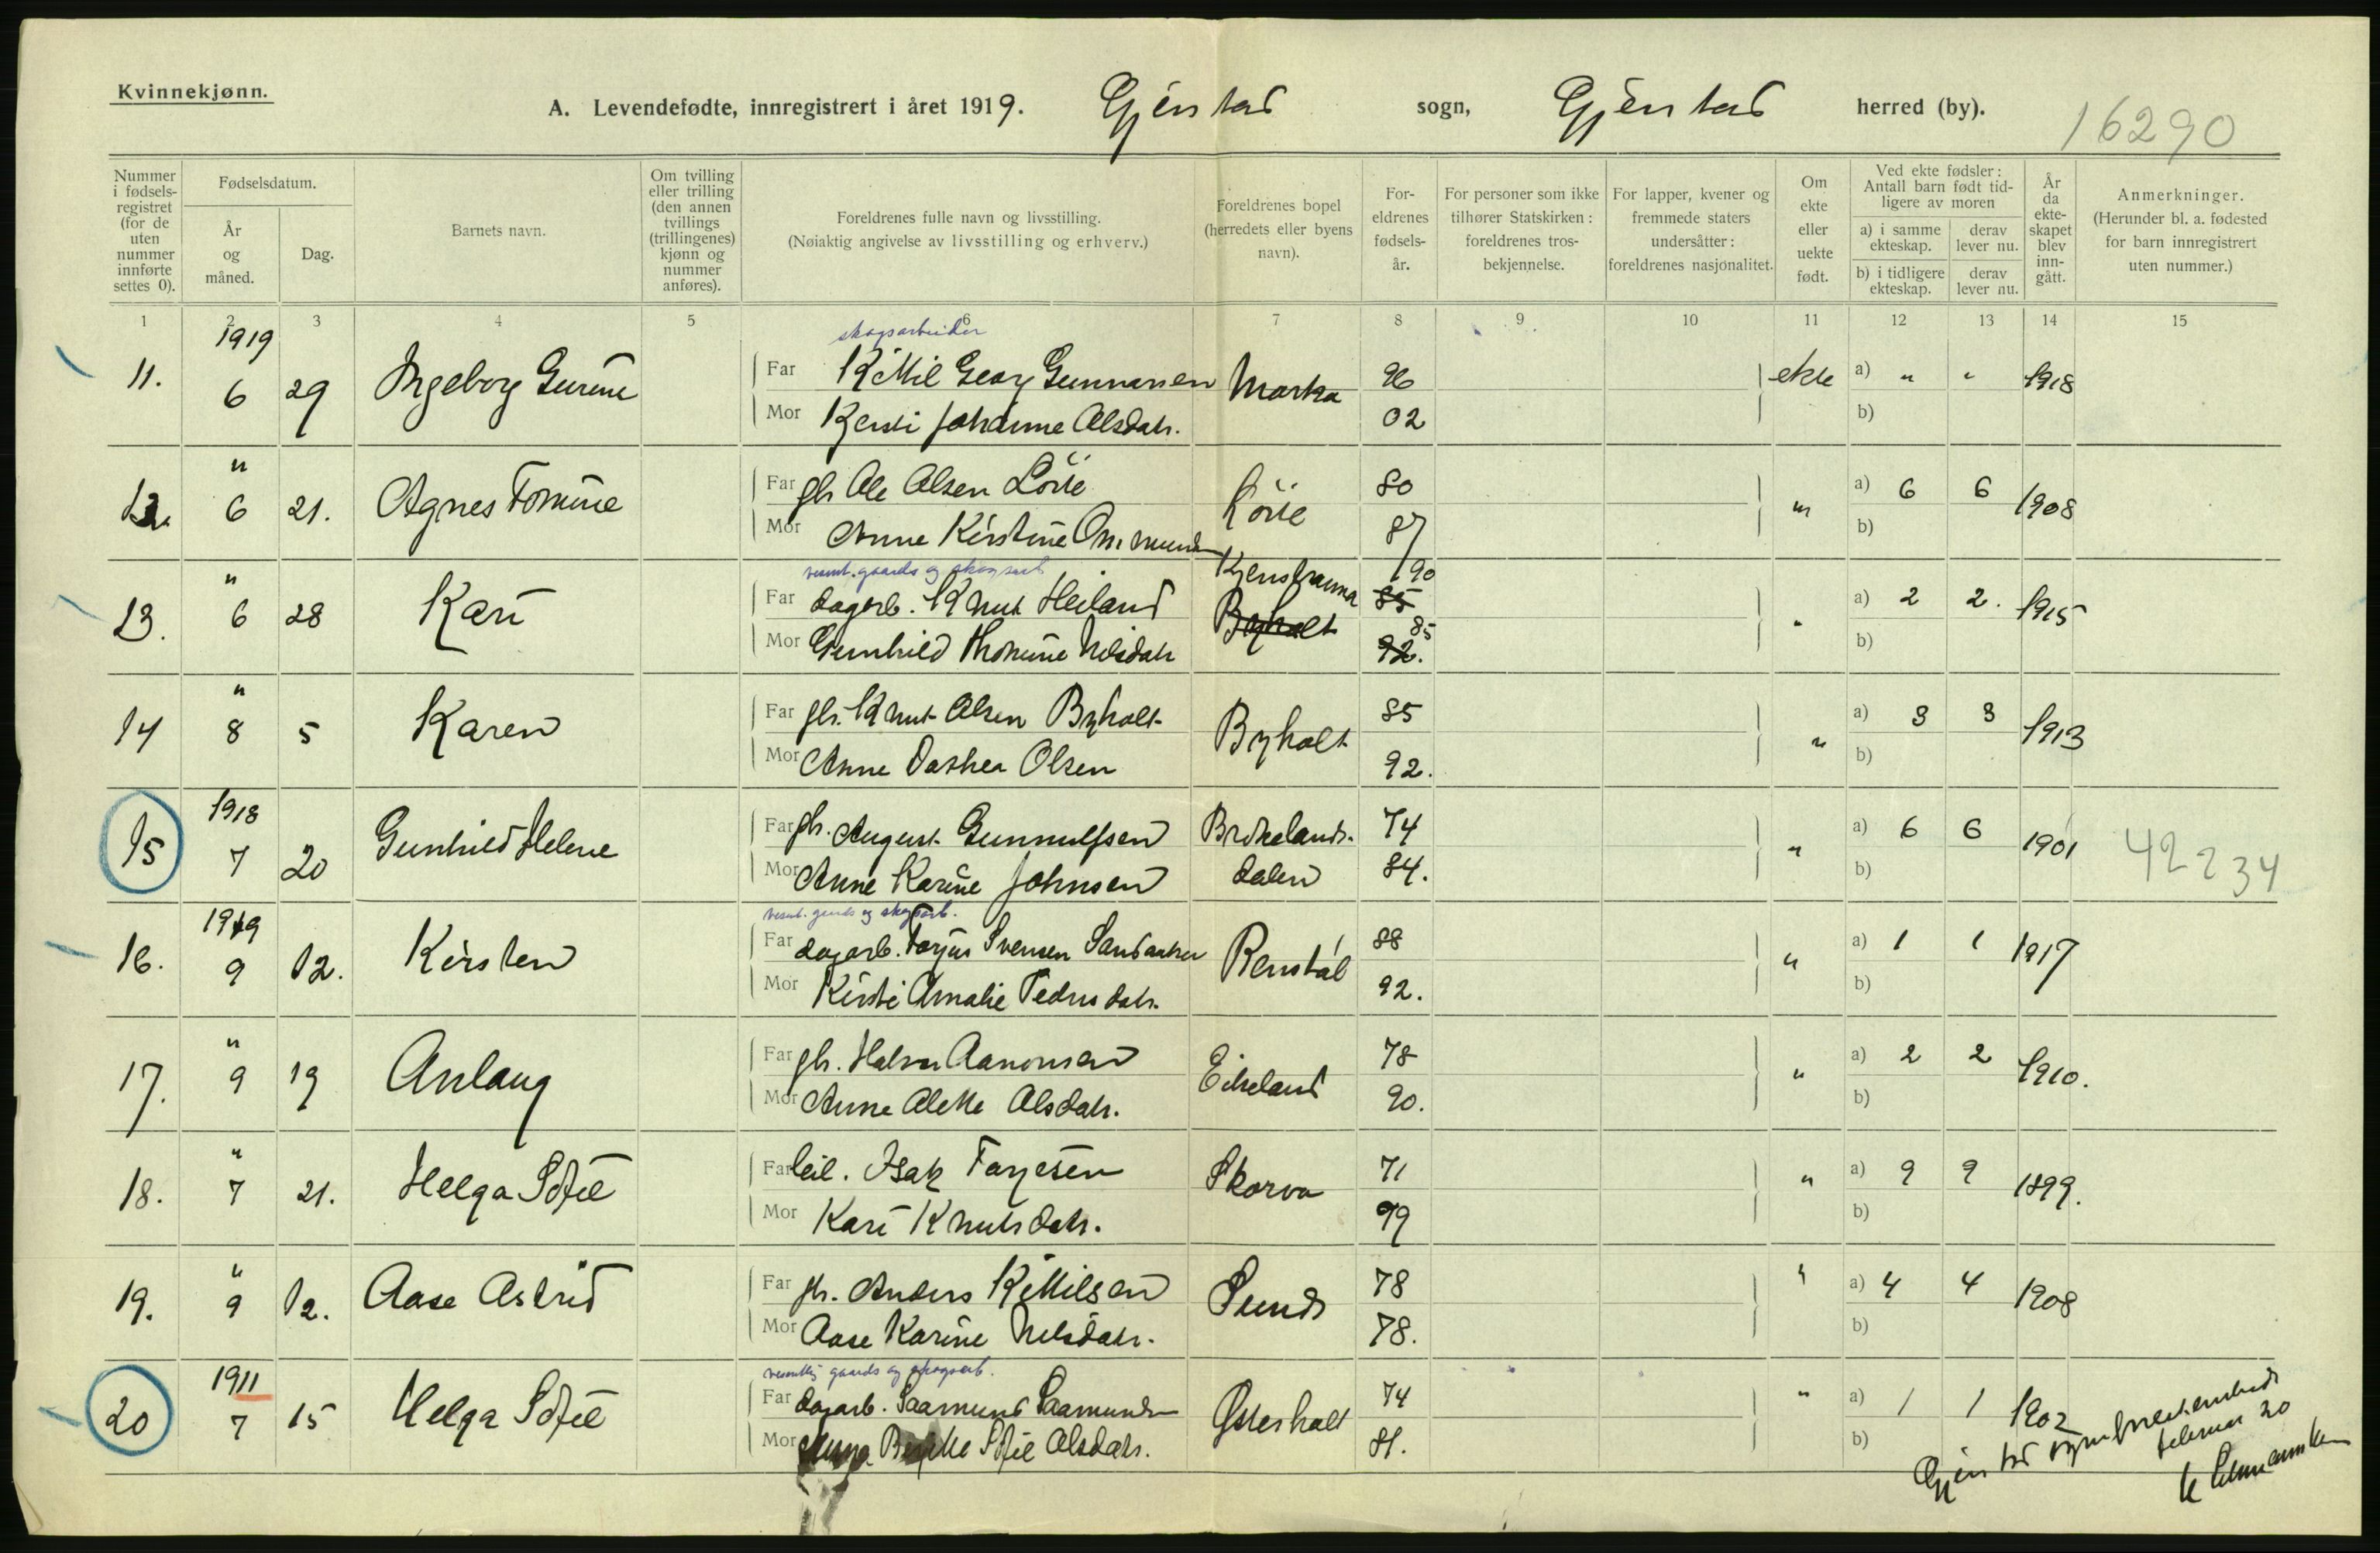 Kvinnekjønn.
A. Levendefødte, innregistrert i året 1919. Gjerstad sogn, Gjerstad herred (by).
16290
Nummer i fødsels-registret (for de uten nummer innførte settes 0).
Fødselsdatum.
År og måned.
Dag.
Barnets navn.
Om tvilling eller trilling (den annen tvillings (trillingenes) kjønn og nummer anføres).
Foreldrenes fulle navn og livsstilling.
(Nøiaktig angivelse av livsstilling og erhverv.)
Foreldrenes bopel (herredets eller byens navn).
For-eldrenes fødsels-år.
For personer som ikke tilhører Statskirken: foreldrenes tros-bekjennelse.
For lapper, kvener og fremmede staters undersåtter: foreldrenes nasjonalitet.
Om ekte eller uekte født.
Ved ekte fødsler: Antall barn født tid-ligere av moren
a) i samme ekteskap.
derav lever nu.
b) i tidligere ekteskap.
derav lever nu.
År da ekte-skapet blev inn-gått.
Anmerkninger.
(Herunder bl. a. fødested for barn innregistrert uten nummer.)
1 2 3 4 5 6 7 8 9 10 11 12 13 14 15
1919
skogsarbeider
11. 6 29 Ingeborg Gurine
Far Kittil Georg Gunnarsen Marka 96 ekte a) " " 1918
Mor Kersti Johanne Olsdatr. 02 b)
"
12. 6 21. Agnes Tomine
Far gbr. Ole Olsen Löite Löite 80 " a) 6 6 1908
Mor Anne Kirstine Ommunds 87 b)
"
vesentl. gaards og skogsarb.
13. 6 28 Kari
Far dagarb. Knut Heiland 90 85 " a) 2 2. 1915
Byholt
Mor Gunhild Thomine Nilsdatr 85 92. b)
"
14 8 5 Karen
Far gbr. Knut Olsen Byholt Byholt 85 " a) 3 3 1913
Mor Anne Dorthea Olsen 92. b)
1918
15 7 20 Gunhild Helene
Far gbr. August Gunnulfsen Brokelands- 74 " a) 6 6 1901 42234
Mor Anne Karine Johnsen dalen 84. b)
1919
vesentl. gaards og skogsarb.
16. 9 12. Kirsten
Far dagarb. Torjus Svensen Sandaaker Renstøl 88 " a) 1 1 1917
Mor Kirsti Amalie Pedersdatr. 92. b)
"
17. 9 19 Aslaug
Far gbr. Halvor Aanonsen Eikeland 78 " a) 2 2 1910.
Mor Anne Alette Olsdatr. 90. b)
"
18. 7 21. Helga Sofie
Far leil. Isak Torjesen Skorva 71 " a) 9 9 1899.
Mor Kari Knutsdatr. 79 b)
"
19. 9 12. Aase Astrid
Far gbr. Anders Kittilsen Sunds 78 " a) 4 4 1908
Mor Aase Karine Nilsdatr. 78. b)
1911
vesentlig gaards og skogsarb.
20 7 15 Helga Sofie
Far dagarb. Saamund Saamundsen Østerholt 74 " a) 1 1 1902
Mor Sofie Olsdatr. 81. b)
Gjerstad sogneprestembede
februar 20